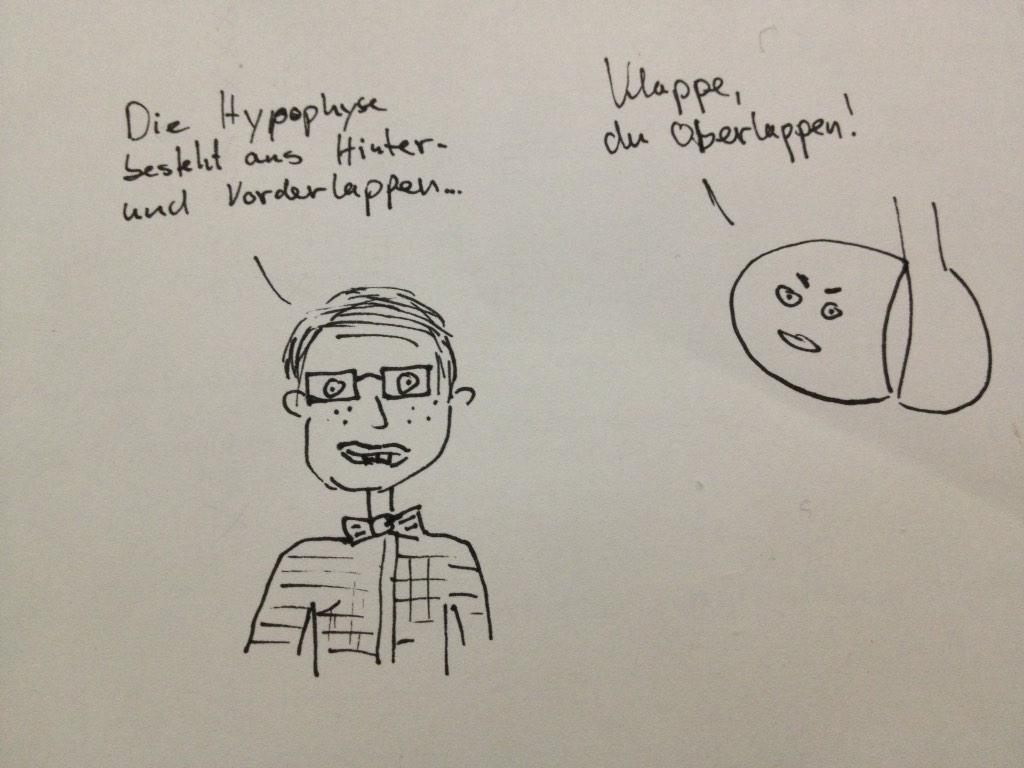 Die Hypophyse
besteht aus Hinter-
und Vorderlappen...
Klappe,
du Oberlappen!